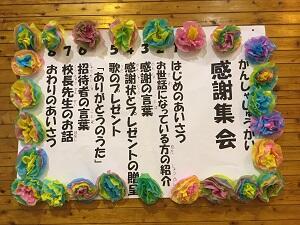 かんしゃしゅうかい
感謝集会
1 はじめのあいさつ
2 お世話になっている方の紹介
3 感謝の言葉
4 感謝状とプレゼントの贈呈
5 歌のプレゼント
「ありがとうのうた」
6 招待者の言葉
7 校長先生のお話
8 おわりのあいさつ